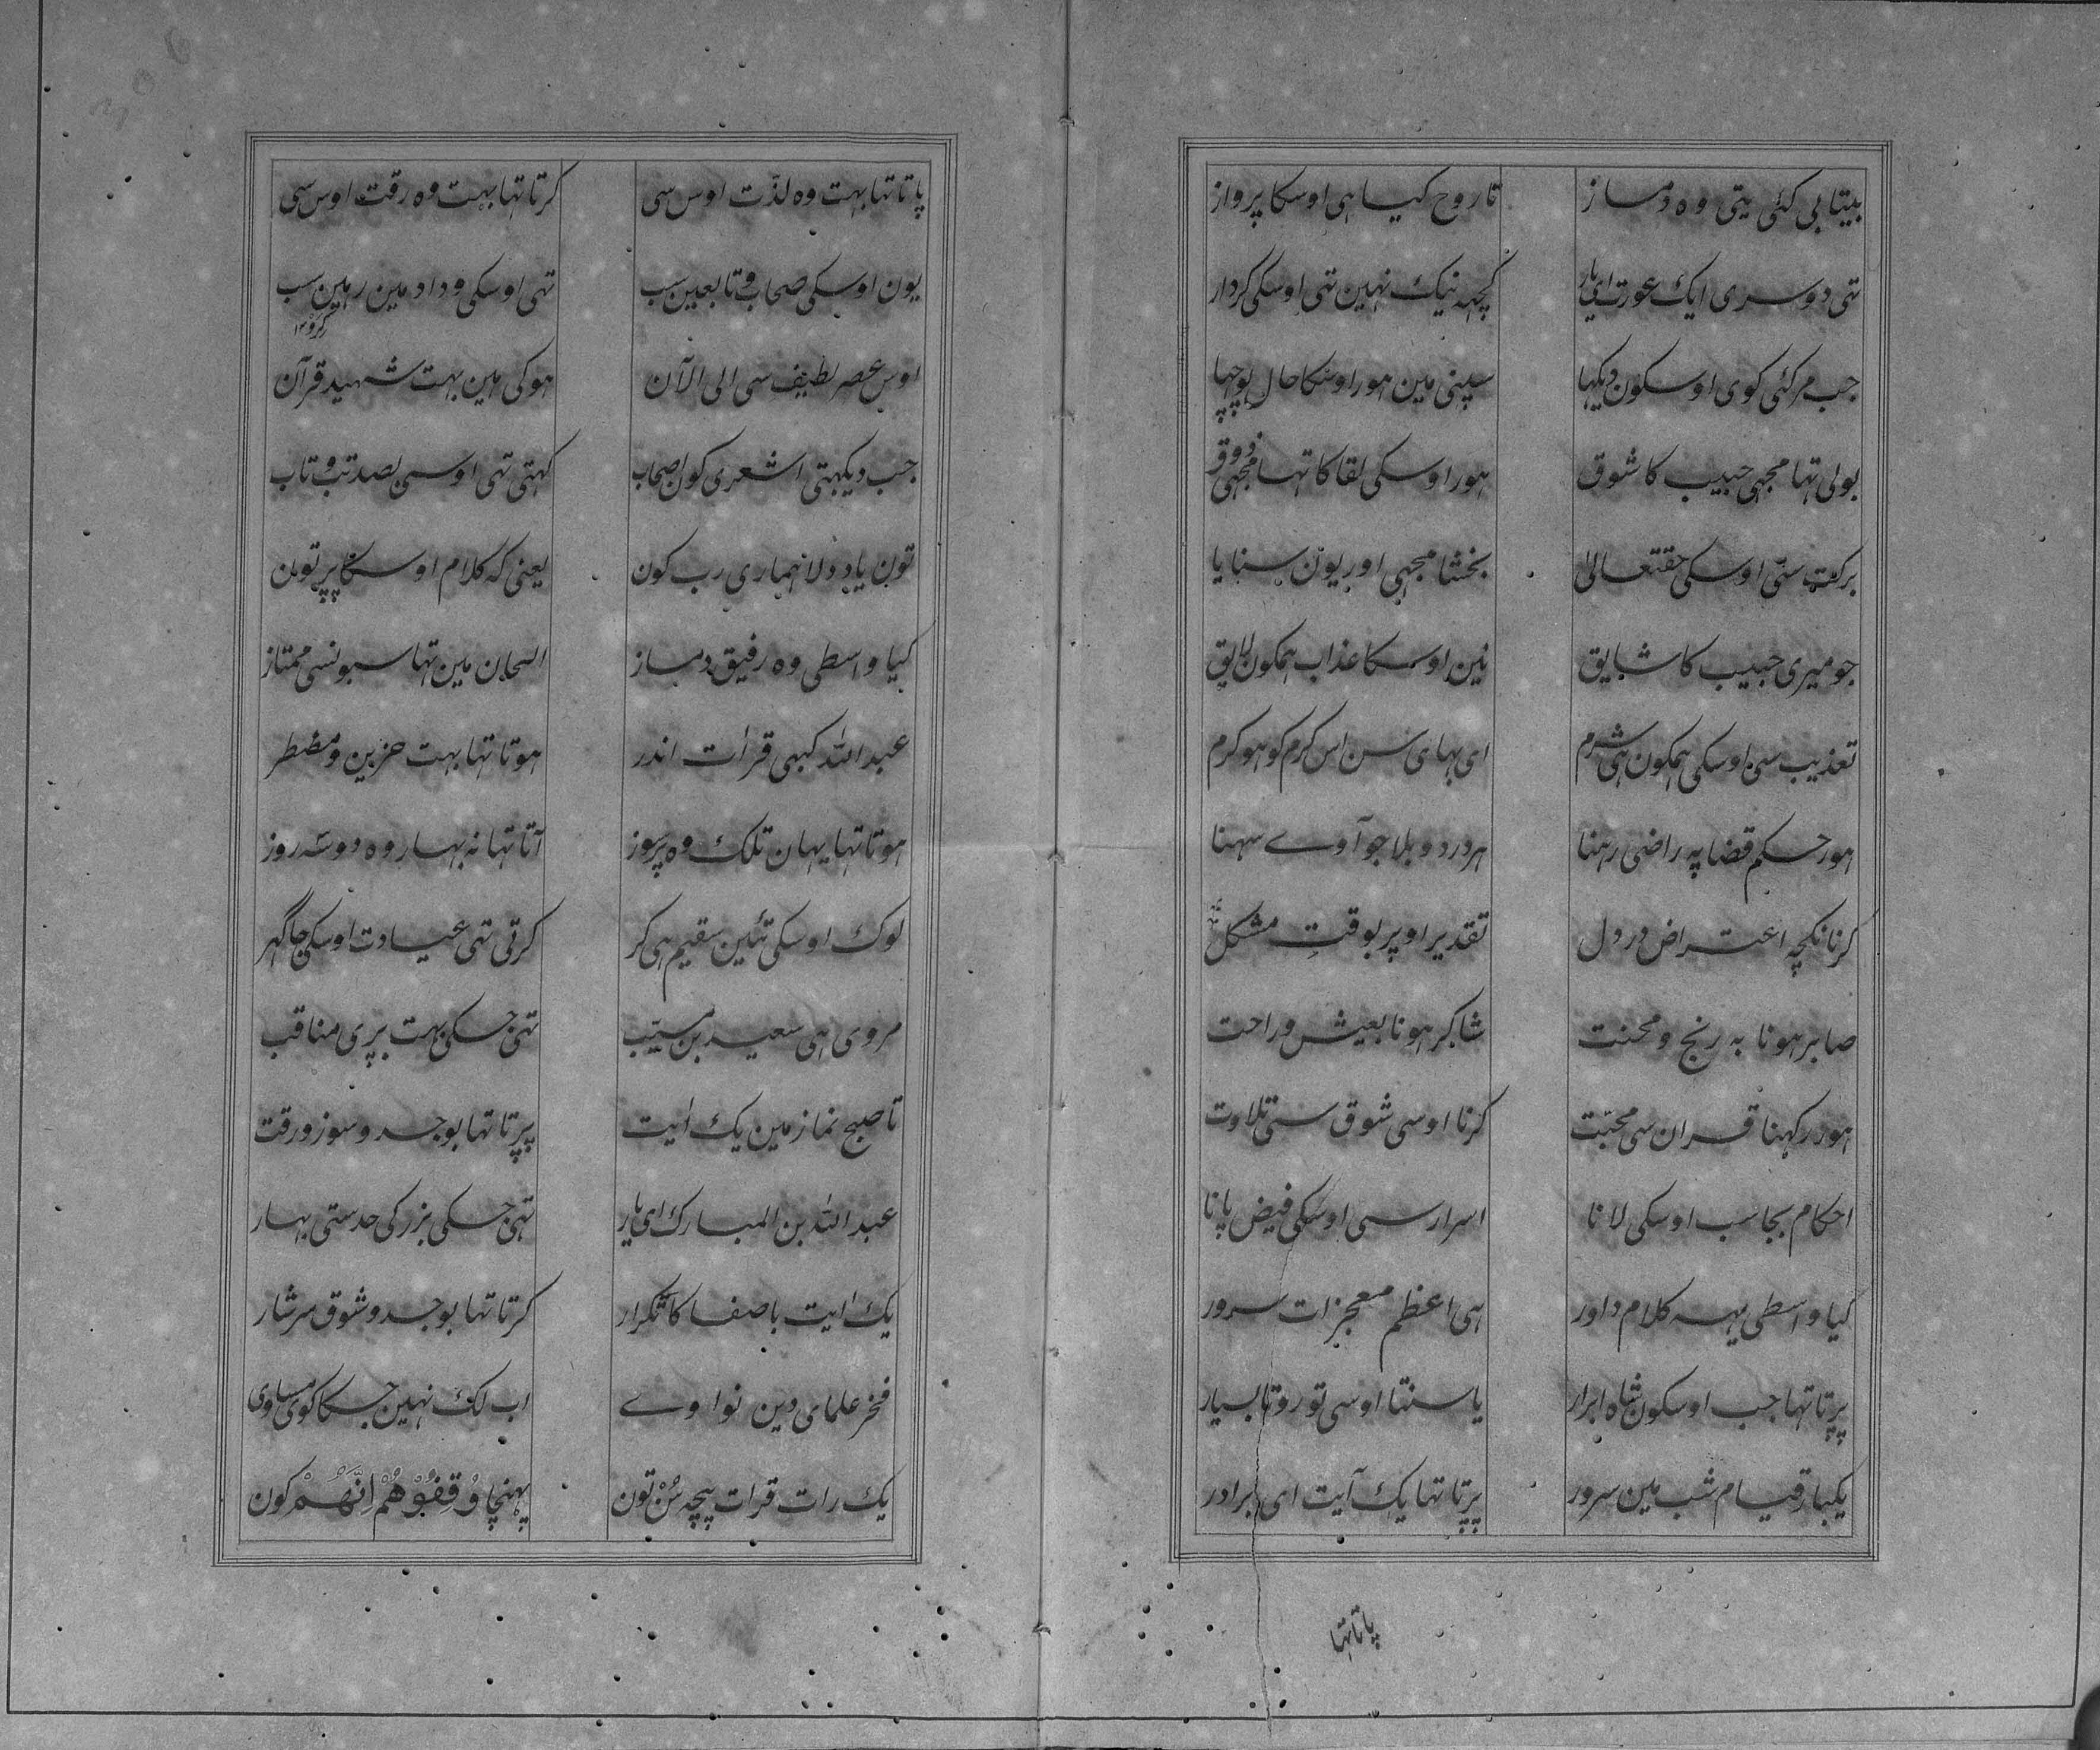 بیتابی کئی یتی وہ دمساز تا روح کیا ہی اوسکا پرواز
تہی دوسری ایک عورت ای یار کچہہ نیک نہین تہی اوسکی کردار
جب مر کئی کوی اوسکون دیکہا سپنی مین ہور اوسکا حال پوچہا
بولی تہا مجہی حبیب کا شوق ہور اوسکی لقا کا تہا مجہی ذوق
برکت ستی اوسکی حقتعالیٰ بخشا مجہی اور یون سنایا
جو میری حبیب کا شایق نین اوسکا عذاب ہمکون لایق
تعذیب سی اوسکی ہمکون ہی شرم ای بہای سن اس کرم کو ہو کرم
ہور حکم قضا پہ راضی رہنا ہر درد و بلا جو آوے سہنا
کرنا نکچہ اعتراض در دل تقدیر اوپر بوقتِ مشکل
صابر ہونا بہ رنج و محنت شاکر ہونا بعیش و راحت
ہور رکہنا قران سی محبّت کرنا اوسی شوق ستی تلاوت
احکام بجا سب اوسکی لانا اسرار سی اوسکی فیض پانا
کیا واسطی یہہ کلام داور ہی اعظم معجزات سرور
پرتا تہا جب اوسکون شاہ ابرار یا سنتا اوسی تو روتا بسیار
یکبار قیام شب مین سرور پرتا تہا یک آیت ای برادر
پاتا تہا
پاتا تہا بہت وہ لذّت اوس سی کرتا تہا بہت وہ رقت اوس سی
یون اوسکی صحاب و تابعین سب تہی اوسکی وداد مین رہین سب
اوس عصر لطیف سی الی الآن ہوکی ہین بہت شہید قرآن
جب دیکہتی اشعری کون اصحاب کہتی تہی اوسی بصد تب و تاب
تون یاد دلا ہماری رب کون یعنی کہ کلام اوسکا پر تون
کیا واسطی وہ رفیق دمساز الحان مین تہا سبونسی ممتاز
عبد اللہ کبہی قرات اندر ہوتا تہا بہت حزین و مضطر
ہوتا تہا یہان تلک وہ پرسوز آتا تہا نہ بہار وہ دوسہ روز
لوک اوسکی تئین سقیم ہی کر کرتی تہی عیادت اوسکی جا گہر
مروی ہی سعید بن مسیّب تہی جسکی بہت بری مناقب
تا صبح نماز مین یک ایت پرتا تہا بوجد و سوز و رقت
عبد اللہ بن المبارک ای یار تہی جسکی بزرکی حد ستی بہار
یک ایت باصفا کا تکرار کرتا تہا بوجد و شوق سرشار
فخر علمای دین نواوے اب لک نہین جسکا کوی مساوی
یک رات قرات بیچہ سُنْ تون پہنچا وَقِفُوْهُمْ اِنَّهُمْ کون